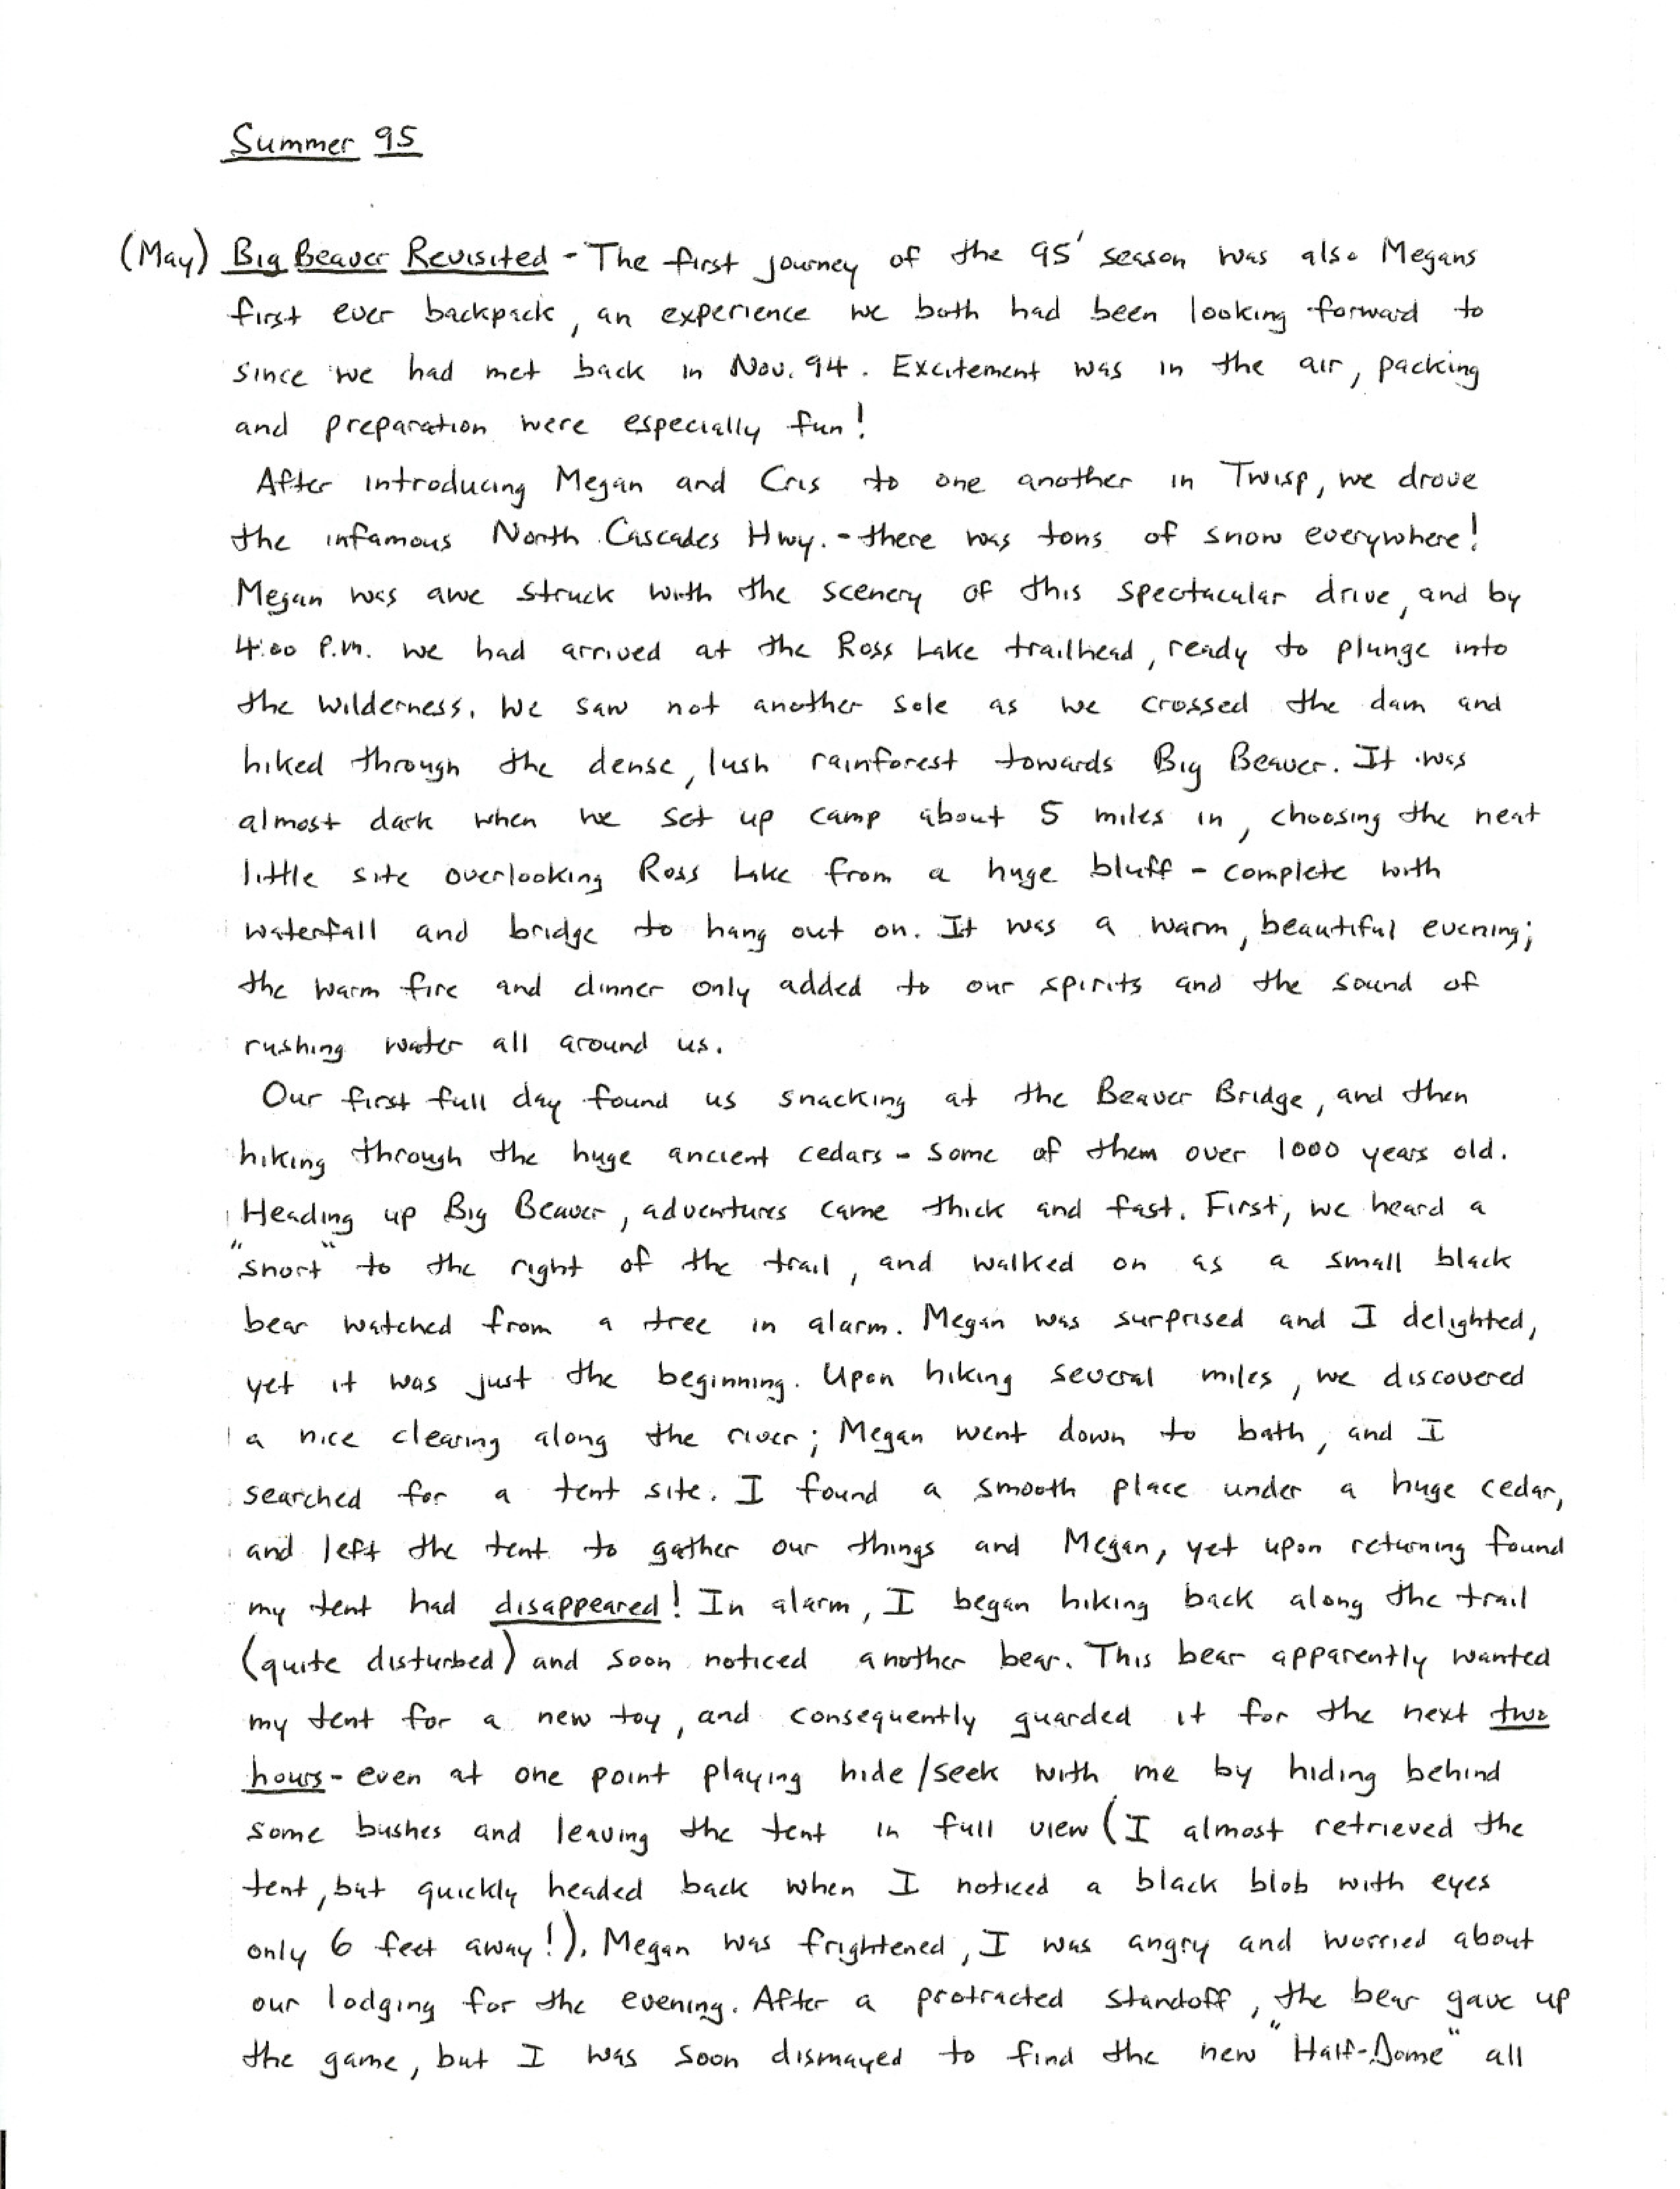 Summer 95
(May) Big Beaver Revisited - The first journey of the 95' season was also Megans
first ever backpack, an experience we both had been looking forward to
since we had met back in Nov. 94. Excitement was in the air, packing
and preparation were especially fun!
After introducing Megan and Cris to one another in Twisp, we drove
the infamous North Cascades Hwy. - there was tons of snow everywhere!
Megan was awe struck with the scenery of this spectacular drive, and by
4:00 P.M. we had arrived at the Ross Lake trailhead, ready to plunge into
the wilderness. We saw not another sole as we crossed the dam and
hiked through the dense, lush rainforest towards Big Beaver. It was
almost dark when we set up camp about 5 miles in, choosing the neat
little site overlooking Ross Lake from a huge bluff - complete with
waterfall and bridge to hang out on. It was a warm, beautiful evening;
the warm fire and dinner only added to our spirits and the sound of
rushing water all around us.
Our first full day found us snacking at the Beaver Bridge, and then
hiking through the huge ancient cedars - some of them over 1000 years old.
Heading up Big Beaver, adventures came thick and fast. First, we heard a
"snort" to the right of the trail, and walked on as a small black
bear watched from a tree in alarm. Megan was surprised and I delighted,
yet it was just the beginning. Upon hiking several miles, we discovered
a nice clearing along the river; Megan went down to bath, and I
searched for a tent site. I found a smooth place under a huge cedar,
and left the tent to gather our things and Megan, yet upon returning found
my tent had disappeared! In alarm, I began hiking back along the trail
(quite disturbed) and soon noticed another bear. This bear apparently wanted
my tent for a new toy, and consequently guarded it for the next two
hours - even at one point playing hide/seek with me by hiding behind
some bushes and leaving the tent in full view (I almost retrieved the
tent, but quickly headed back when I noticed a black blob with eyes
only 6 feet away!). Megan was frightened, I was angry and worried about
our lodging for the evening. After a protracted standoff, the bear gave up
the game, but I was soon dismayed to find the new "Half-Dome" all